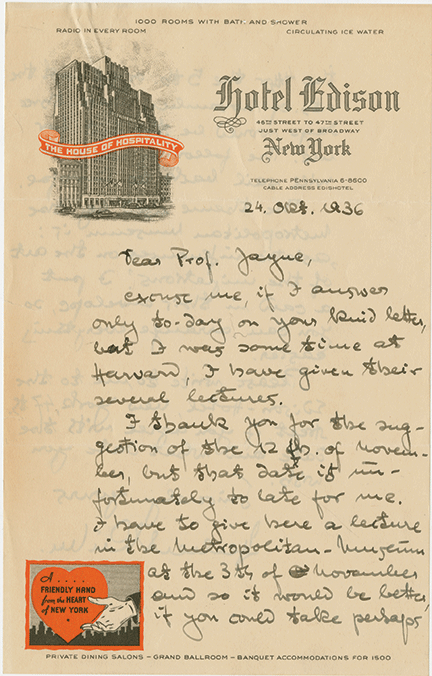 1000 ROOMS WITH BATH AND SHOWER
RADIO IN EVERY ROOM
CIRCULATING ICE WATER
THE HOUSE OF HOSPITALITY
Hotel Edison
46TH STREET TO 47TH STREET
JUST WEST OF BROADWAY
New York
TELEPHONE PENNSYLVANIA 6-5000
CABLE ADDRESS EDISHOTEL
24. Okt. 1936
Dear Prof. Jayne,
excuse me, if I answer
only to-day on your kind letter,
but I was some time at
Harvard, I have given their
several lectures.
I thank you for the sug-
gestion of the 12th. of novem-
ber, but that date is un-
fortunately to late for me.
I have to give here a lecture
in the Metropolitan-Museum
at the 3th of November
and so it would be better,
if you could take perhaps
A....
FRIENDLY HAND
from the HEART
of NEW YORK
PRIVATE DINING SALONS – GRAND BALLROOM – BANQUET ACCOMMODATIONS FOR 1500